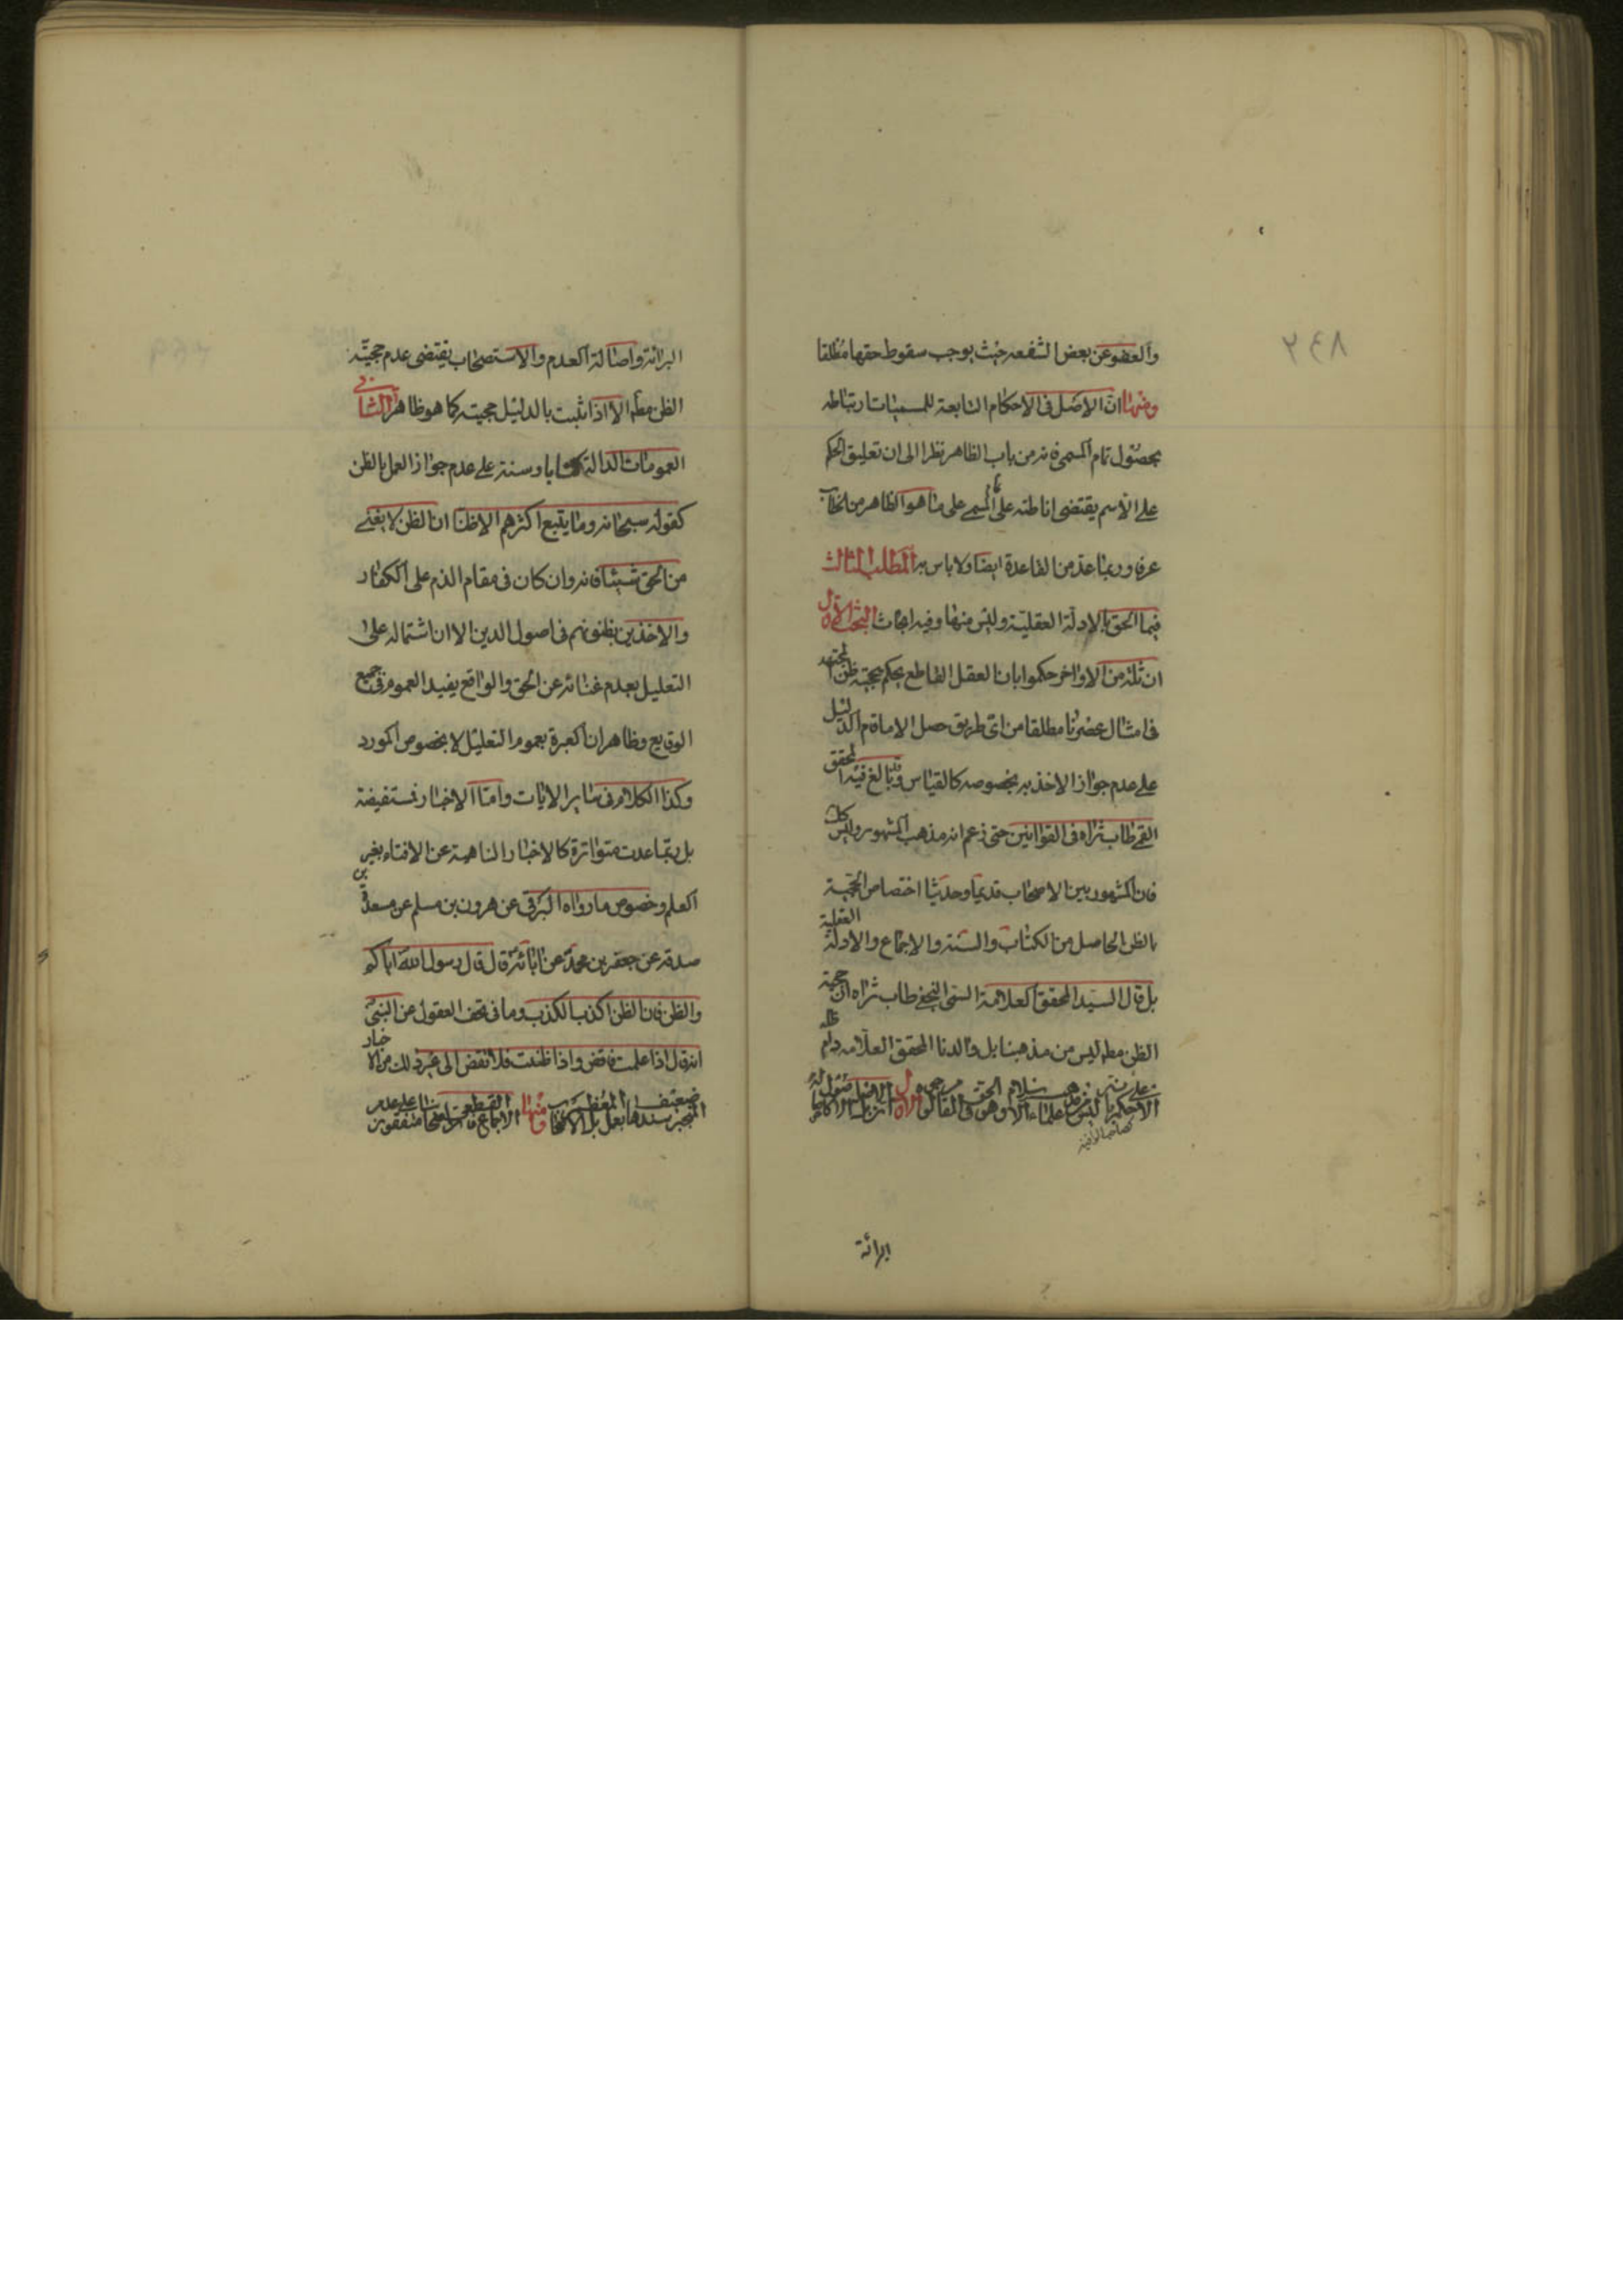 والعفو عن بعض الشفعه حيث يوجب سقوط حقها مطلقا
ومنها ان الاصل فى الاحكام التابعة للمسميات ارتباطه
بحصول تمام المسمى فانه من باب الظاهر نظرا الى ان تعليق الحكم
على الاسم يقتضى اناطته على المسمى على ما هو الظاهر من الخطاب
عرفا وربما عد من القاعدة ايضا ولا باس به المطلب الثالث
فيما الحق بالادلة العقلية وليس منها وفيه ابحاث البحث الاول
ان ثلة من الاواخر حكموا بان العقل القاطع يحكم بحجية ظن المجتهد
فى امثال عصرنا مطلقا من اى طريق حصل الا ما قام الدليل
على عدم جواز الاخذ به بخصوصه كالقياس وبالغ فيه المحقق
القمى طاب ثراه فى القوانين حتى زعم انه مذهب المشهور وليس كك
فان المشهور بين الاصحاب قديما وحديثا اختصاص الحجية
بالظن الحاصل من الكتاب والسنة والاجماع والادلة العقلية
بل قال السيد المحقق العلامة السمى النجفى طاب ثراه ان حجية
الظن مطم ليس من مذهبنا بل والدنا المحقق العلامه دام ظله
برائة
٨٤٢
البرائة واصالة العدم والاستصحاب يقتضى عدم حجيته
الظن مطم الا اذا ثبت بالدليل حجيته كما هو ظاهر الثانى
العمومات الدالة كتابا وسنة على عدم جواز العمل بالظن
كقوله سبحانه وما يتبع اكثرهم الا ظنا ان الظن لا يغنى
من الحق شيئا فانه وان كان فى مقام الذم على الكفار
والاخذين بظنونهم فى اصول الدين الا ان اشتماله على
التعليل بعدم غنائه عن الحق والواقع يفيد العموم فى جميع
الوقايع وظاهر ان العبرة بعموم التعليل لا بخصوص المورد
وكذا الكلام فى ساير الايات واما الاخبار فمستفيضة
بل ربما عدت متواترة كالاخبار الناهية عن الافتاء بغير
العلم وخصوص ما رواه البرقى عن هرون بن مسلم عن مسعدة بن
صدقة عن جعفر بن محمد عن ابائه قال قال رسول الله اياكم
والظن فان الظن اكذب الكذب وما فى تحف العقول عن النبى
انه قال اذا علمت فاقض واذا ظننت فلا تقض الى غير ذلك من الاخبار